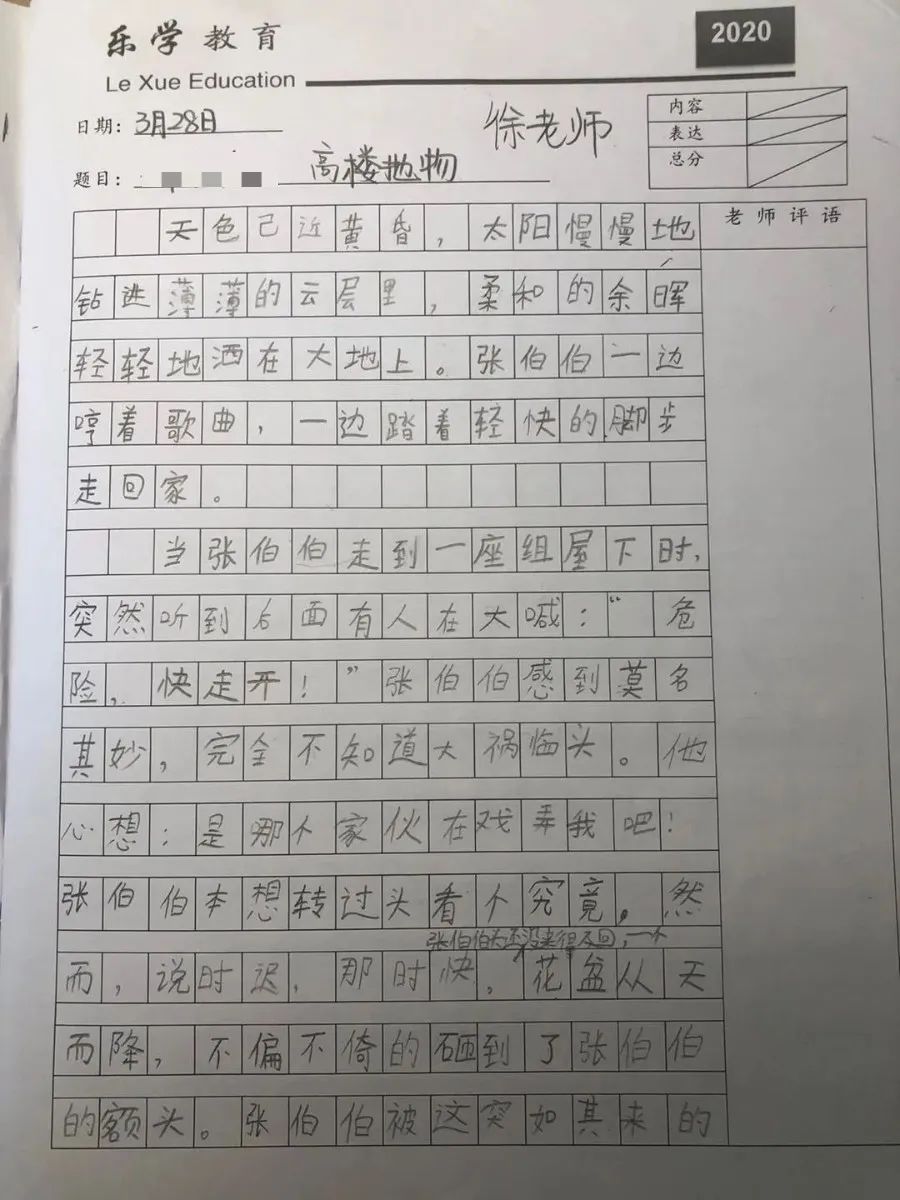 乐学教育
2020
Le Xue Education
日期：3月28日
徐老师
内容
表达
总分
题目：
高楼抛物
老师评语
天色己近黄昏，太阳慢慢地
钻进薄薄的云层里，柔和的余晖
轻轻地洒在大地上。张伯伯一边
哼着歌曲，一边踏着轻快的脚步
走回家。
当张伯伯走到一座组屋下时，
突然听到后面有人在大喊：“危
险，快走开！”张伯伯感到莫名
其妙，完全不知道大祸临头。他
心想：是哪个家伙在戏弄我吧！
张伯伯本想转过头看个究竟，然
张伯伯头还没来得及回，一个
而，说时迟，那时快，花盆从天
而降，不偏不倚的砸到了张伯伯
的额头。张伯伯被这突如其来的